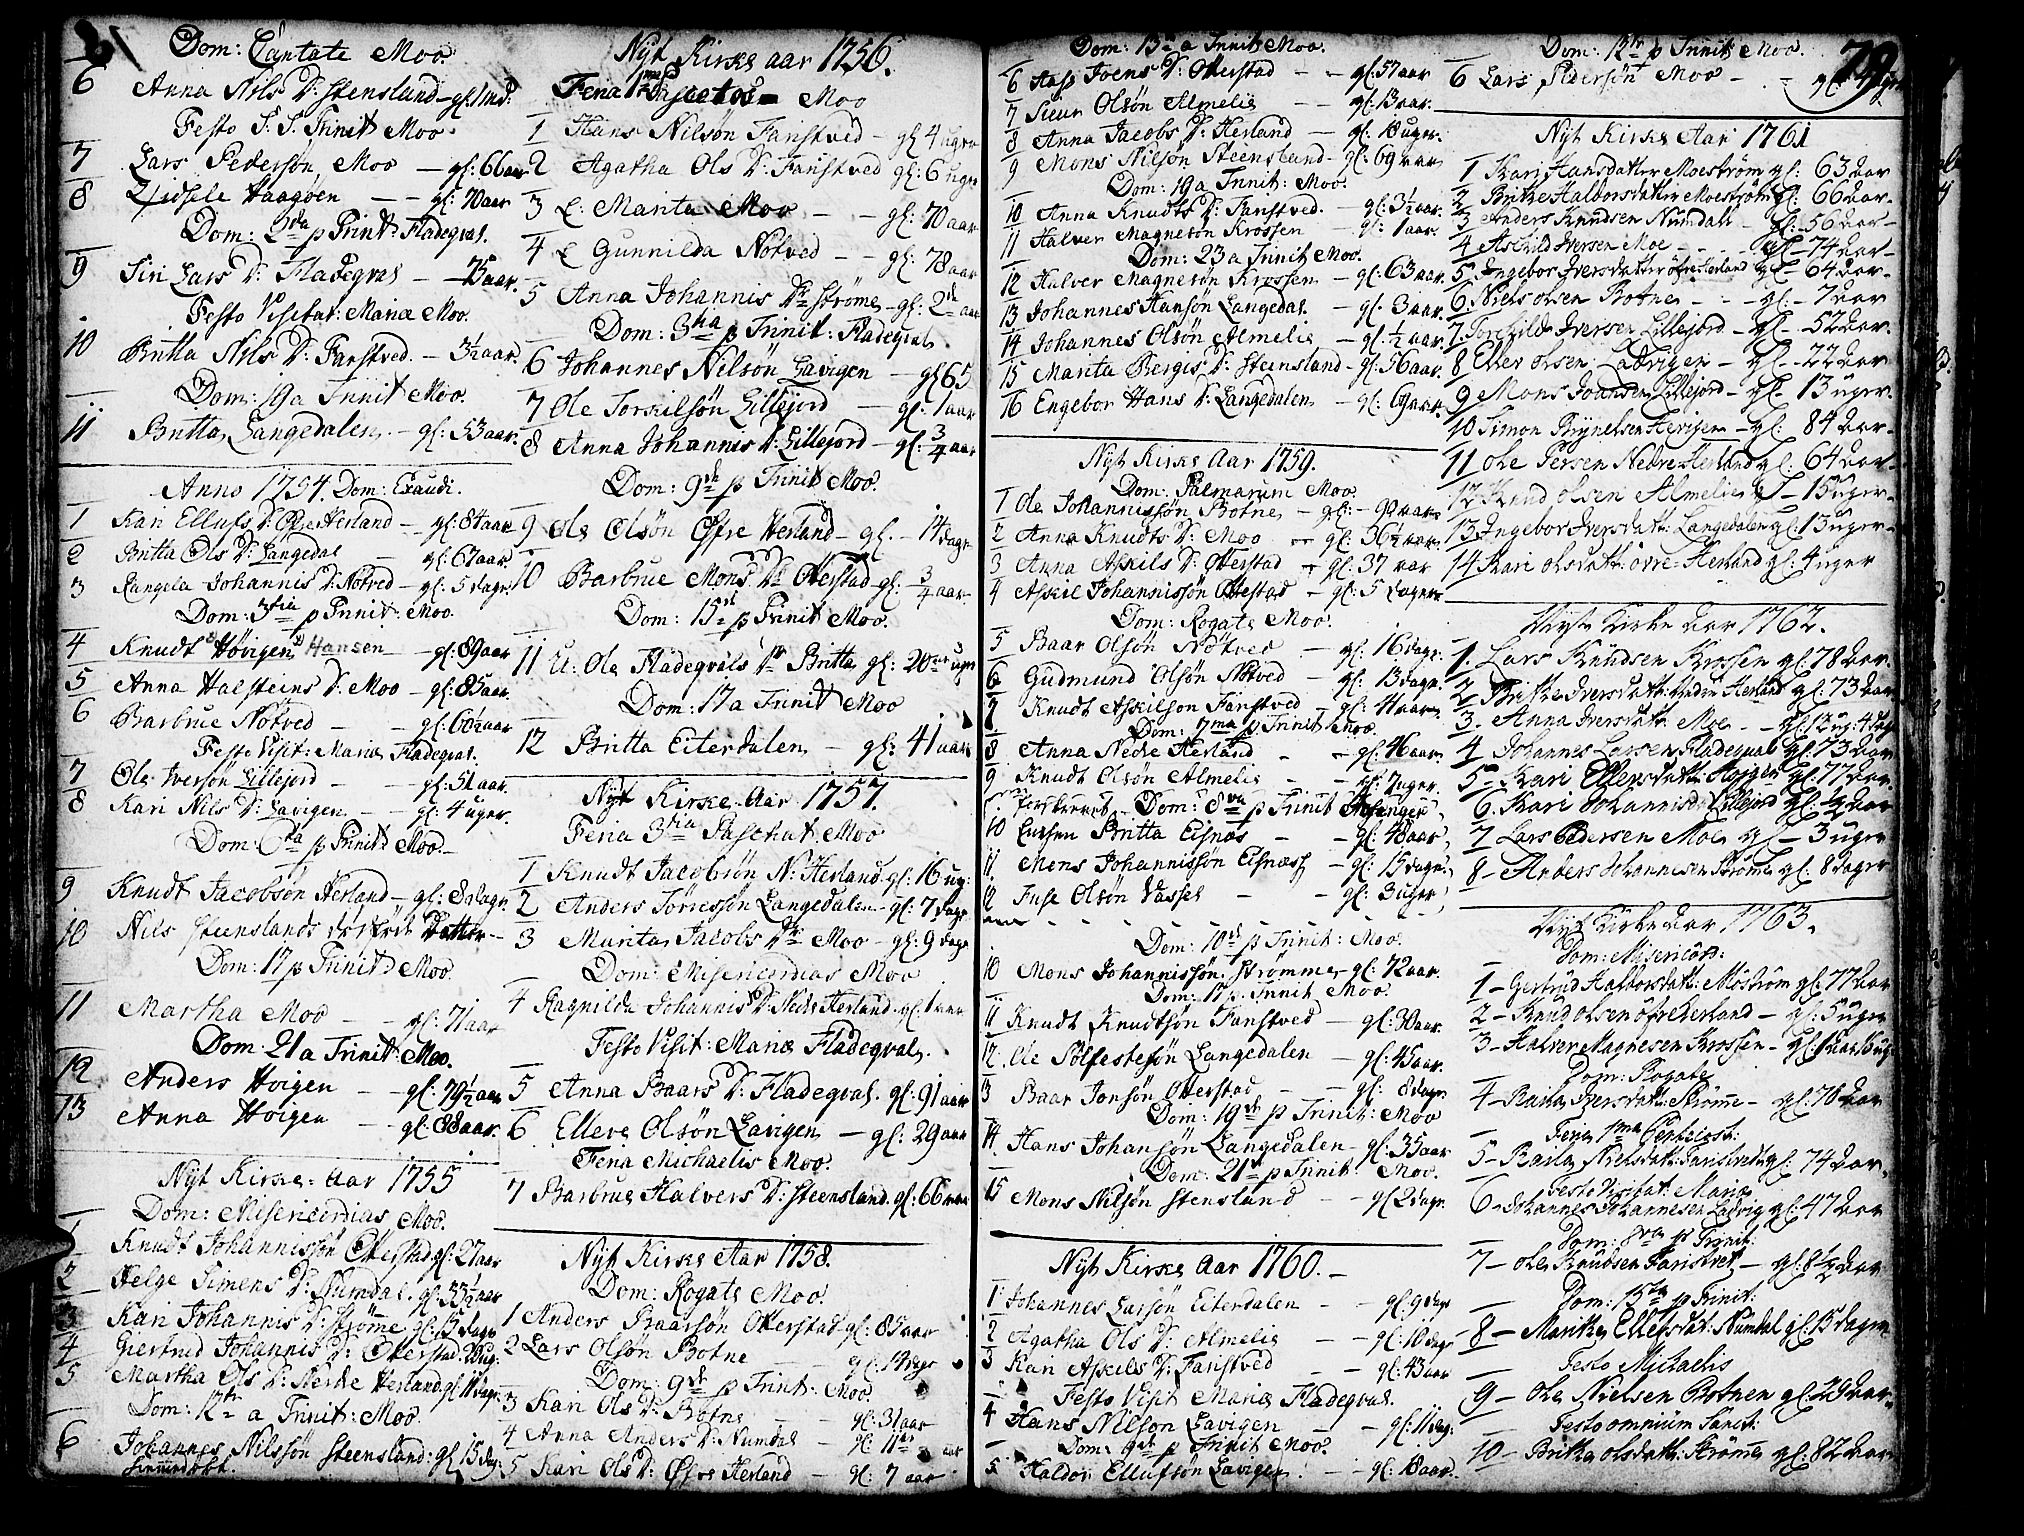 Dom: Cantate Moo.
6 Anna Nils D: Stensland - gl. 1 md:
Festo S. S. Trinit Moo.
7 Lars Pedersøn Moo - gl: 66 aar
8 Haagøen - - gl: 70 aar
Dom: 2da p Trinit: Fladeqval.
9 Siri Lars D: Fladeqval - 75 aar.
Festo Visitat: Mariæ Moo.
10 Britta Nils D: Farstved. - 3½ aar.
Dom: 19 a Trinit Moo.
11 Britta Langedalen - gl: 53 aar.
Anno 1754. Dom: Exaudi.
1 Kari Ellufs D: Øfre Herland - gl: 84 aar
2 Britta Ols D: Langedal - gl: 67 aar.
3 Rangela Johannis D: Nøtved - gl: 5 dage.
Dom: 3tia p Trinit: Moo.
4 Knudt Høvigen Hansen - gl: 89 aar
5 Anna Halsteins D: Moo - gl: 85 aar.
6 Barbrue Nøtved - - gl: 60½ aar
Festo Visit: Mariæ Fladeqval.
7 Ole Iversøn Lillejord - gl: 51 aar.
8 Kari Nils D: Lavigen - gl: 4 uger.
Dom: 6ta p Trinit: Moo.
9 Knudt Jacobsøn Herland - gl: 8 dage.
10 Nils Steenslands dødfød Datter -
Dom: 17 p Trinit: Moo.
11 Martha Moo - - gl: 71 aar
Dom: 21 a Trinit: Moo.
12 Anders Høigen - gl: 79½ aar
13 Anna Høigen - gl: 88 aar.
Nyt Kirke-aar 1755
Dom: Misericordias Moo.
1 Knudt Johannissøn Otterstad gl: 27 aar
2 Helge Simens D: Numdal. gl: 33½ aar
3 Kari Johannis D: Strøme gl: 13 dage
4 Giertrud Johannis D: Otterstad. ug:
5 Martha Ols D: Nedre Herland gl: 11 dage.
Dom: 12te a Trinit: Moo.
6 Johannes Nilssøn Steensland: gl 15 dag:
Nyt Kirke aar 1756.
Feria 1ma Moo
1 Hans Nilsøn Farstved - gl 4 uger
2 Agatha Ols D: Farstved gl: 6 uger
3 E: Marita Moo - - gl: 70 aar
4 E Gunnilda Nøtved - - gl: 78 aar
5 Anna Johannis Dr Strøme - gl: 2 aar
Dom: 3tia p Trinit: Fladeqval.
6 Johannes Nilsøn Lavigen - gl 65
7 Ole Torkilsøn Lillejord - gl: 1 aar
8 Anna Johannis D: Lillejord - gl: ¾ aar
Dom: 9de p Trinit Moo.
9 Ole Olsøn Øfre Herland - gl. - 14 dage
10 Barbrue Mons Dr Otterstad gl: ¾ aar.
Dom: 15de p Trinit Moo.
11 U: Ole Fladeqvals Dr Britta gl: 20 uger
Dom: 17 a Trinit Moo
12 Britta Eiterdalen - gl: 41 aar
Nyt Kirke-Aar 1757.
Feria 3tia Paschat: Moo
1 Knudt Jacobsøn N: Herland gl: 16 ug:
2 Anders Torressøn Langedalen - gl: 7 dage
3 Marita Jacobs Dr Moo - gl: 9 dage
Dom: Misericordias Moo
4 Ragnilda Johannis D: Nedre Herland gl: 1 aar
Festo Visit: Mariæ Fladeqval.
5 Anna Baars D: Fladeqval. gl: 91 aar
6 Elleve Olsøn Lavigen - gl: 29 aar
Feria Michaelis Moo.
7 Barbrue Halvers D: Steensland. gl: 66 aar
Nyt Kirke Aar 1758.
Dom: Rogate Moo.
1 Anders Baarsøn Otterstad gl: 85 aar
2 Lars Olsøn Botne gl: 14 dage
Dom: 9de p Trinit: Moo.
3 Kari Ols D: Botne - - gl: 31 aar
4 Anna Anders D: Numdal - gl: 11 aar
5 Kari Ols D: Øfre Herland - gl: 7 aar
Dom: 13de a Trinit Moo.
6 Aase Joens D: Otterstad - - gl: 57 aar
7 Siur Olsøn Almelie - - gl: 13 aar.
8 Anna Jacobs D: Herland - gl: 18 uger.
9 Mons Nilsøn Steensland - gl: 69 aar
Dom: 19 a Trinit: Moo.
10 Anna Knudts D: Farstved. - gl: 3½ aar.
11 Halver Magnesøn Krossen - gl: 1 aar.
Dom: 23 a Trinit Moo.
12 Halver Magnesøn Krossen - gl: 63 aar.
13 Johannes Hansøn Langedal. - gl: 3 aar.
14 Johannes Olsøn Almelie - gl: ½ aar.
15 Marita Bergis D: Steensland - gl: 56 aar.
16 Engebor Hans D: Langedalen - gl: 69 aar
Nyt Kirke Aar 1759.
Dom: Palmarum Moo.
1 Ole Johannissøn Botne - gl: - 92 aar
2 Anna Knudts D: Moo - gl: 36½ aar.
3 Anna Askils D: Otterstad - gl: 37 aar
4 Askil Johannissøn Ottestad - gl: 5 dager
Dom: Rogate Moo.
5 Baar Olsøn Nøtved - gl: 16 dage:
6 Gudmund Olsøn Nøtved - gl: 13 dage.
7 Knudt Askilsøn Farstved - gl: 41 aar
Dom: 7ma p Trinit Moo.
8 Anna Nedre Herland - gl: 46 aar.
9 Knudt Olsøn Almelie - - gl: 7 uger.
Dom: 8va p Trinit
10 Britta Eisnæs - - gl: 48 aar
11. Mons Johannissøn Eisnæss - gl: 15 dage
12 Fuse Olsøn Vassel - - gl: 3 uger
Dom: 10de p Trinit: Moo.
10 Mons Johannissøn Strømme gl: 72 aar.
Dom: 17 p. Trinit Moo.
11 Knudt Knudtsøn Farstved - gl: 30 aar.
12. Ole Solfestesøn Langedalen - gl: 45 aar.
13 Baar Jonsøn Otterstad - - gl: 8 dage
Dom: 19de p Trinit: Moo
14. Hans Johansøn Langedalen - gl: 35 aar
Dom: 21de p Trinit Moo.
15 Mons Nilsøn Stensland - - gl 2 dage.
Nyt Kirke Aar 1760. -
1 Johannes Larsøn Eiterdalen - - gl: 9 dage
2 Agatha Ols D: Almelie - - gl: 10 dage
3 Kari Askils D: Farstved - gl: 43 aar
Festo Visit Mariæ Fladeqval.
4 Hans Nilson Lavigen - gl: 11 dag:
Dom: 9de p Trinit Moo.
5 Haldor Ellufsøn Lavigen - - gl: 18 aar.
Dom: 12te p Trinit: Moo.
79
6 Lars Pedersøn Moo - - gl:
Nyt Kirke Aar 1761
1 Kari Hansdatter Moestrøm gl: 63 aar
2 Britte Haldorsdatter Moestrøm gl: 66 aar.
3 Anders Knudsen Numdal - gl: 56 aar-
4 Askild Iversen Moe - - - gl - 74 aar-
5. Ingebor Iversdatter øfre Herland gl - 64 aar-
6. Niels olsen Botne - - - gl. - 7 aar
7. Torchild Iversen Lillejord - gl - 52 aar-
8 Elter olsen Ladvigen - gl - 22 aar
9 Mons Joansen Lillejord - gl - 13 uger.
10 Simon Brynelsen Herisen - gl: 84 aar-
11 ole Persen Nedre Herland gl: 64 aar-
12 Knud olsen Almelie gl - 15 uger-
13. Ingebor Iversdatt: Langedalen gl: 13 uger-
14 Kari olsdatt: övre Herland gl: 4 uger
Nyt Kirke aar 1762.
1. Lars Knudsen Krossen gl: 78 aar.
2. Britte Iversdatt: Nedre Herland gl: 73 aar
3. Anna Iversdatt: Moe - - gl: 12 ug: 4 dag
4 Johannes Larsen Fladequal gl: 73 aar
5- Kari Ellersdatt: Høigen gl: 77 aar
6. Kari Johannisd: Lillejord gl: ½ aar
7 Lars Pedersen Moe gl - 3 uger
8- Anders Johannesen Strøme gl: 8 dager
Nyt Kirke aar 1763.
Dom: Misericord:
1- Gertrud Haldorsdatt: Mostrøm gl: 77 aar
2- Knud olsen öfre Herland - gl: 5 uger
3- Halver Magnesen Krossen - gl:
Dom: Rogate
4- Ragna Iversdatt: Strøme - gl: 78 aar
Feria 1ma Pentecost:
5- Ragna Nielsdatt: Faristvedt gl: 74 aar.
Festo Visitat: Maria
6- Johannes Johannesen Ladvig gl: 47 aar
Dom: p Trinit:
7- ole Knudsen Faristvet - gl: 8½ aar
Dom: 15ta p Trinit:
8- Marithe Ellefsdat: Numdal gl: 15 dager
Festo Michaelis
9- Ole Nielsen Botnen gl: 29 aar.
Festo omnium Sanct:
10- Britha olsdatt: Strøme gl: 82 aar